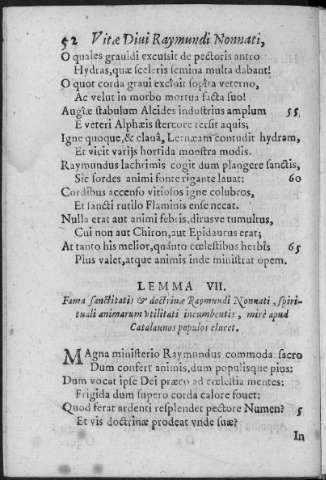 52 Vitæ Diui Raymundi Nonnati,
O quales grauidi excussit de pectoris antro
Hydras, quæ sceleris semina multa dabant!
O quot corda graui excîuit sopita veterno,
Ac velut in morbo mortua facta suo!
Augiæ stabulum Alcides industrius amplum 55
E veteri Alphæis stercore tersit aquis;
Igne quoque, & claua, Lernæam contudit hydram,
Et vicit varijs horrida monstra modis.
Raymundus lachrimis cogit dum plangere sanctis,
Sic sordes animi fonte rigante lauat: 60
Cordibus accenso vitiosos igne colubros,
Et sancti rutilo Flaminis ense necat.
Nulla erat aut animi febris, dirusve tumultus,
Cui non aut Chiron, aut Epidaurus erat;
At tanto his melior, quantò cœlestibus herbis 65
Plus valet, atque animis inde ministrat opem.
LEMMA VII.
Fama sanctitatis & doctrinæ Raymundi Nonnati, spiri-
tuali animarum vtilitati incumbentis, mirè apud
Catalaunos populos eluret.
MAgna ministerio Raymundus commoda sacro
Dum confert animis, dum populisque pius:
Dum vocat ipse Dei præco ad cœlestia mentes:
Frigida dum supero corda calore fouet:
Quod ferat ardenti resplendet pectore Numen? 5
Et vis doctrinæ prodeat vnde suæ?
In